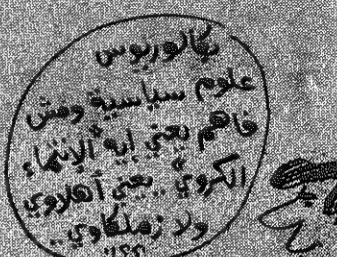 بكالوريوس
علوم سياسية ومش
فاهم يعني إيه "الإنتماء
الكروي" .. يعني أهلاوي
ولا زملكاوي ..
؟؟!!